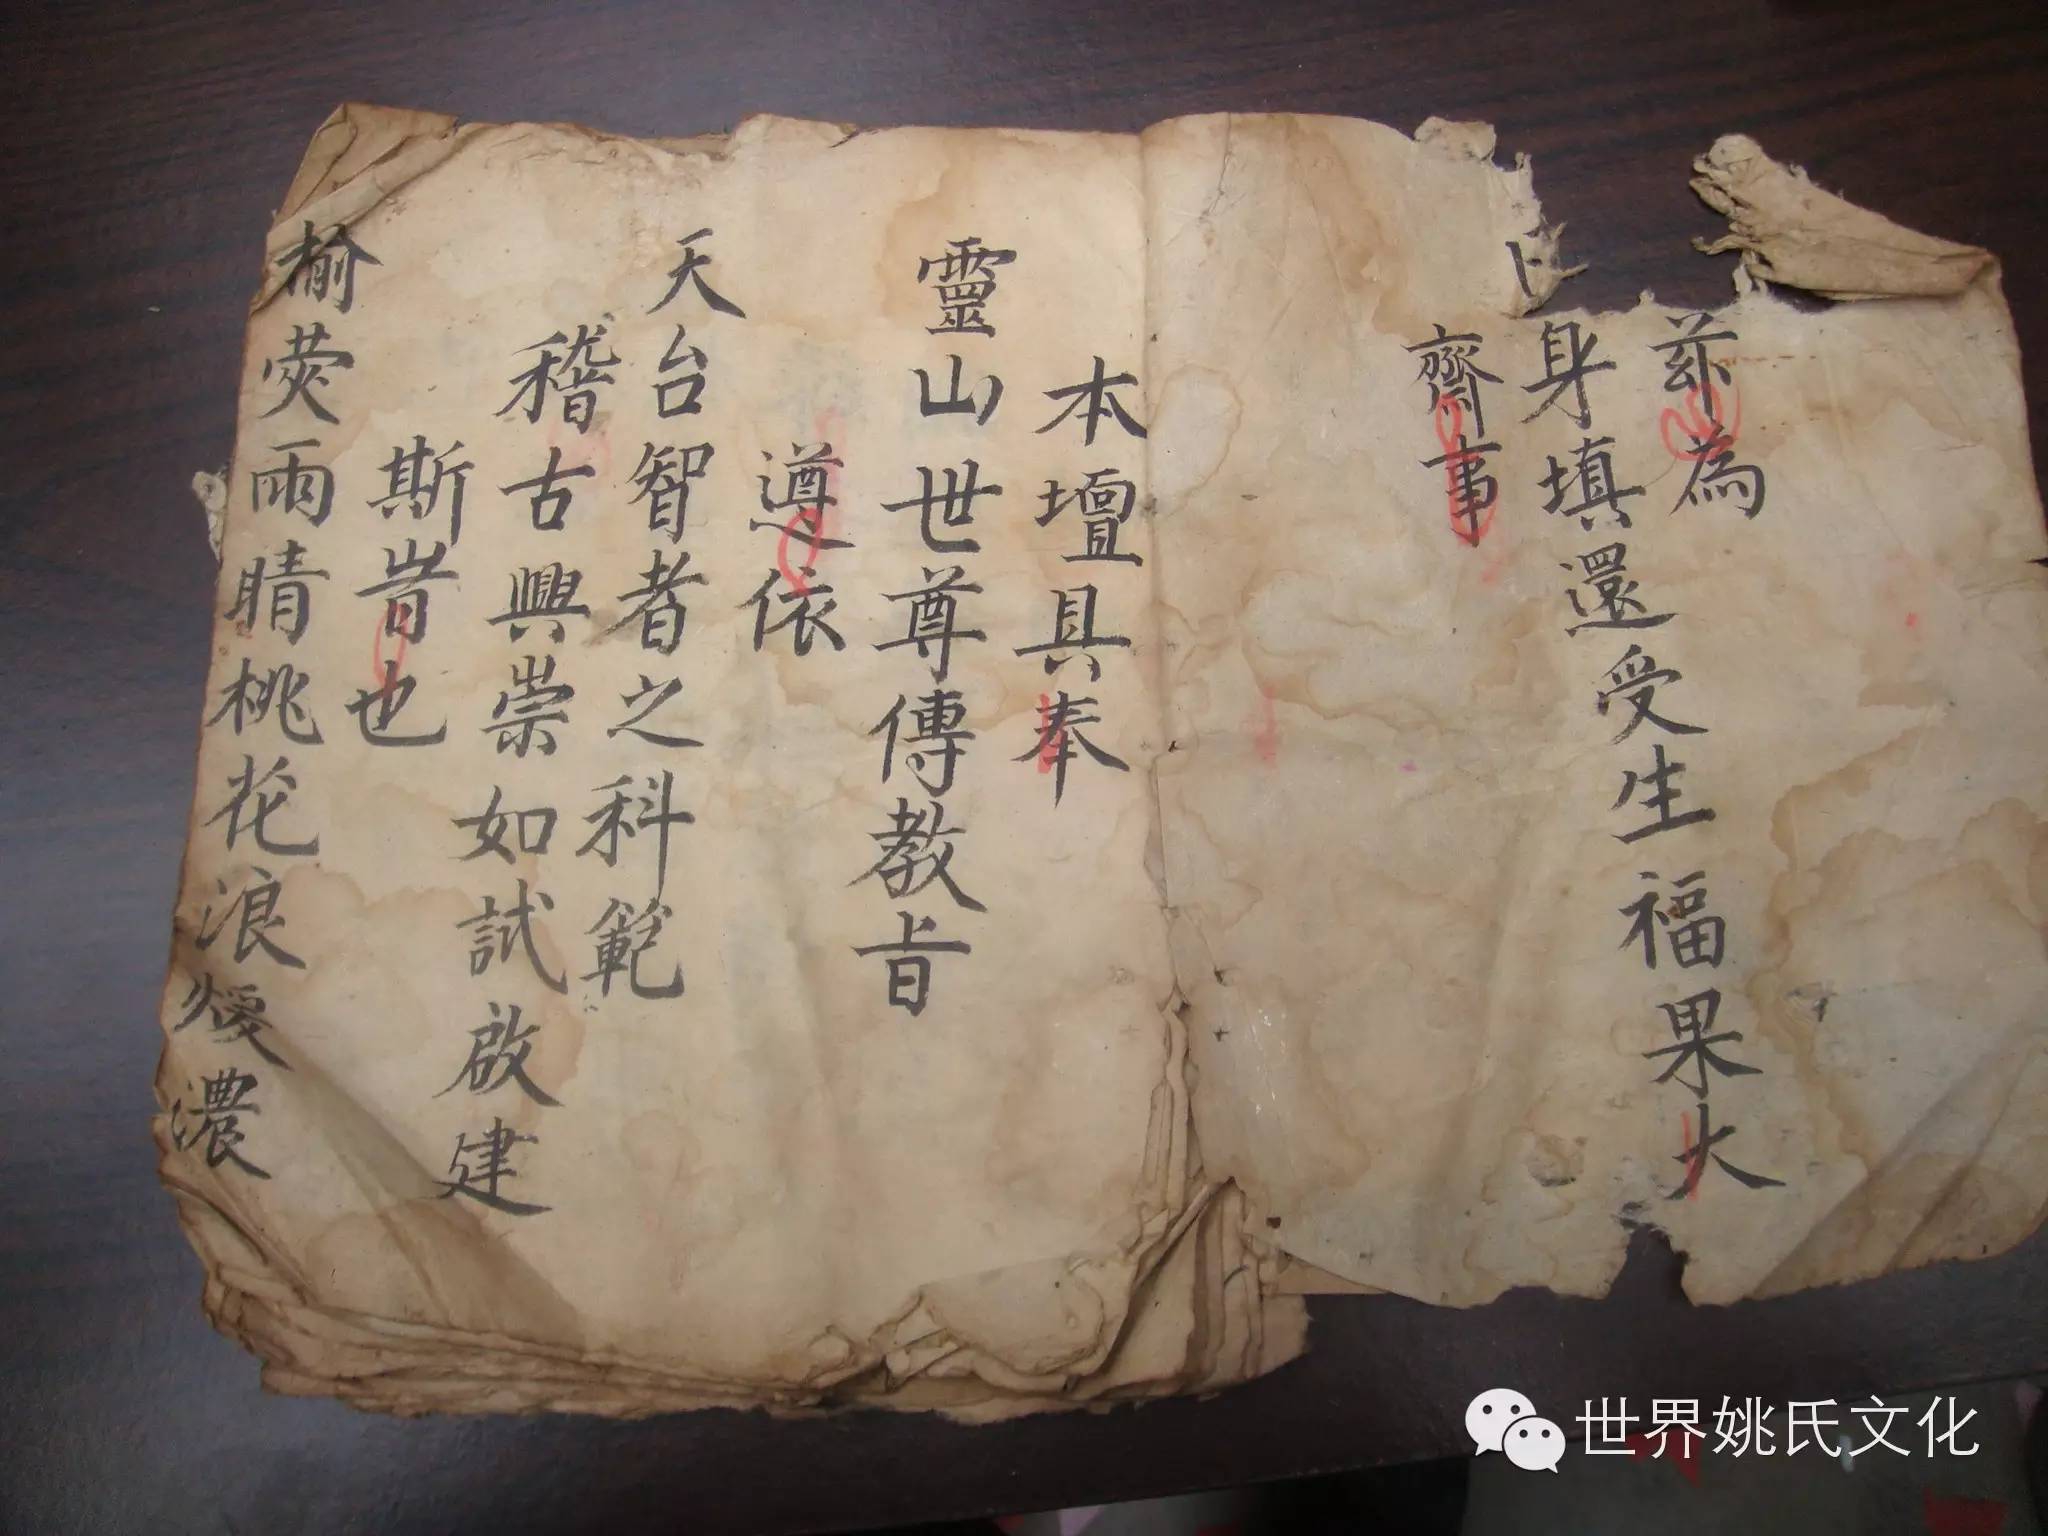 茲為
身填還受生福果大
齋事
本壇具奉
靈山世尊傳教旨
遵依
天台智者之科範
稽古興崇如試啟建
斯旹也
榆荧雨晴桃花浪煖濃
世界姚氏文化